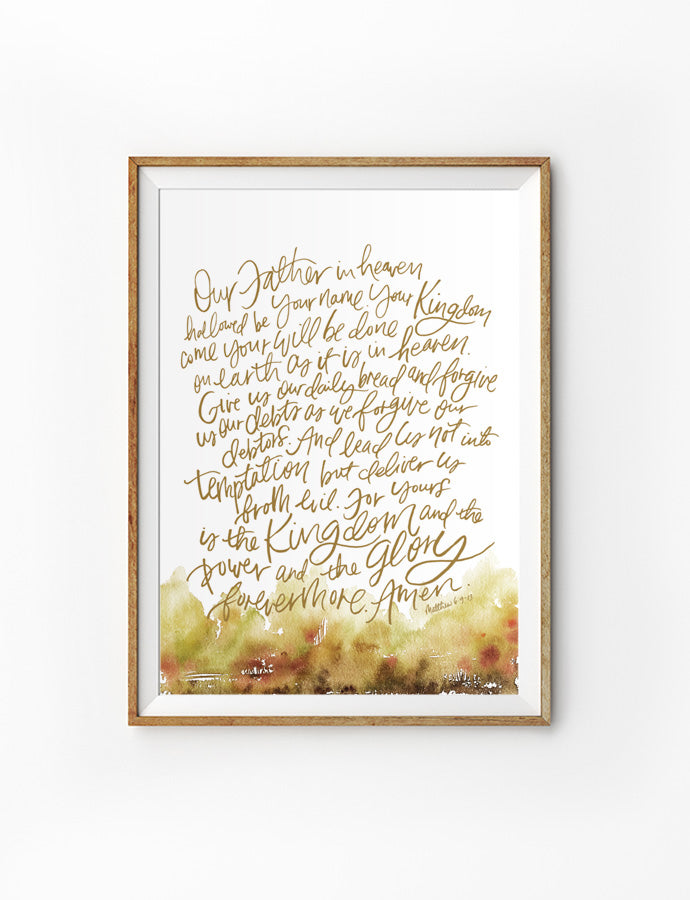 Our Father in heaven
hallowed be Your name. Your Kingdom
come your will be done
on earth as it is in heaven.
Give us our daily bread and forgive
us our debts as we forgive our
debtors. And lead us not into
temptation but deliver us
from evil. For yours
is the Kingdom and the
power and the glory
forevermore. Amen.
Matthew 6:9-13